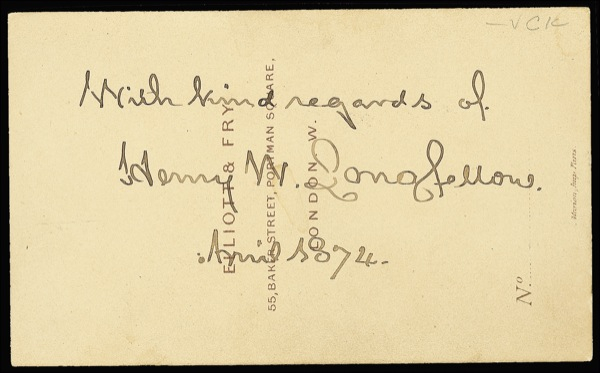 —VCK
With kind regards of
Henry W. Longfellow.
April 1874.
ELLIOTT & FRY
55, BAKER STREET, PORTMAN SQUARE,
LONDON. W.
Nº